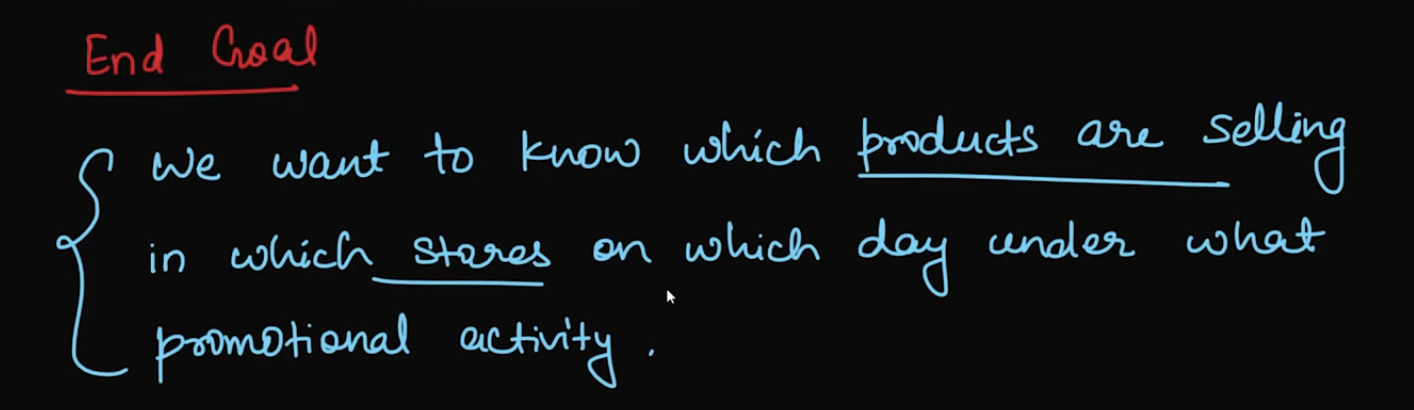 End Goal
We want to know which products are selling
in which stores on which day under what
promotional activity.